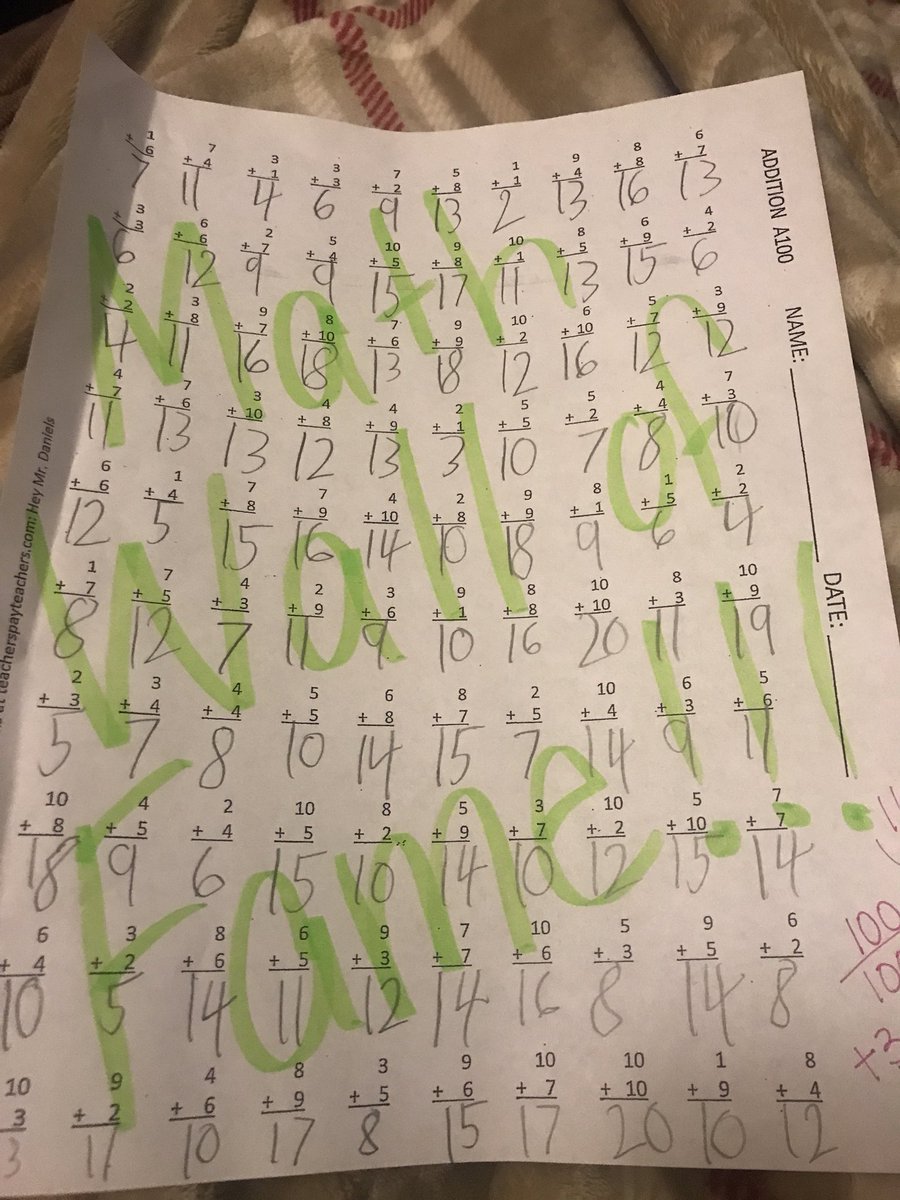 ADDITION A100 NAME: DATE:
1 7 3 3 7 5 1 9 8 6
+ 6 + 4 + 1 + 3 + 2 + 8 + 1 + 4 + 8 + 7
7 11 4 6 9 13 2 13 16 13
3 6 2 5 10 9 10 8 6 4
+ 3 + 6 + 7 + 4 + 5 + 8 + 1 + 5 + 9 + 2
6 12 9 9 15 17 11 13 15 6
2 3 9 8 7 9 10 6 5 3
+ 2 + 8 + 7 + 10 + 6 + 9 + 2 + 10 + 7 + 9
4 11 16 18 13 18 12 16 12 12
4 7 3 4 4 2 5 5 4 7
+ 7 + 6 + 10 + 8 + 9 + 1 + 5 + 2 + 4 + 3
11 13 13 12 13 3 10 7 8 10
6 1 7 7 4 2 9 8 1 2
+ 6 + 4 + 8 + 9 + 10 + 8 + 9 + 1 + 5 + 2
12 5 15 16 14 10 18 9 6 4
1 7 4 2 3 9 8 10 8 10
+ 7 + 5 + 3 + 9 + 6 + 1 + 8 + 10 + 3 + 9
8 12 7 11 9 10 16 20 11 19
2 3 4 5 6 8 2 10 6 5
+ 3 + 4 + 4 + 5 + 8 + 7 + 5 + 4 + 3 + 6
5 7 8 10 14 15 7 14 9 11
10 4 2 10 8 5 3 10 5 7
+ 8 + 5 + 4 + 5 + 2 + 9 + 7 + 2 + 10 + 7
18 9 6 15 10 14 10 12 15 14
6 3 8 6 9 7 10 5 9 6
+ 4 + 2 + 6 + 5 + 3 + 7 + 6 + 3 + 5 + 2
10 5 14 11 12 14 16 8 14 8
10 9 4 8 3 9 10 10 1 8
3 + 2 + 6 + 9 + 5 + 6 + 7 + 10 + 9 + 4
3 11 10 17 8 15 17 20 10 12
Math
Wall of
Fame!!!
teacherspayteachers.com: Hey Mr. Daniels
100